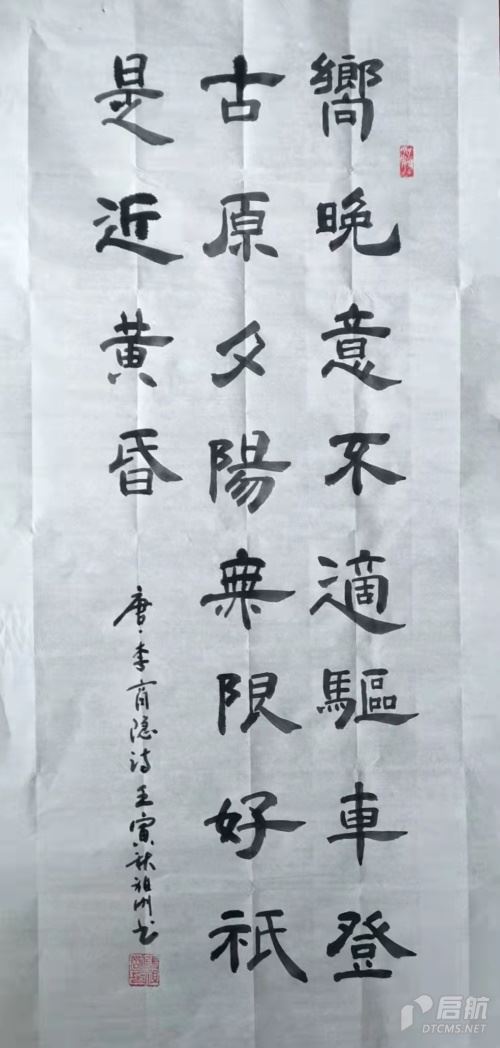 嚮晚意不適驅車登
古原夕陽無限好祇
是近黃昏
唐·李商隐诗壬寅秋祖洲书
启航
DTCMS.NET